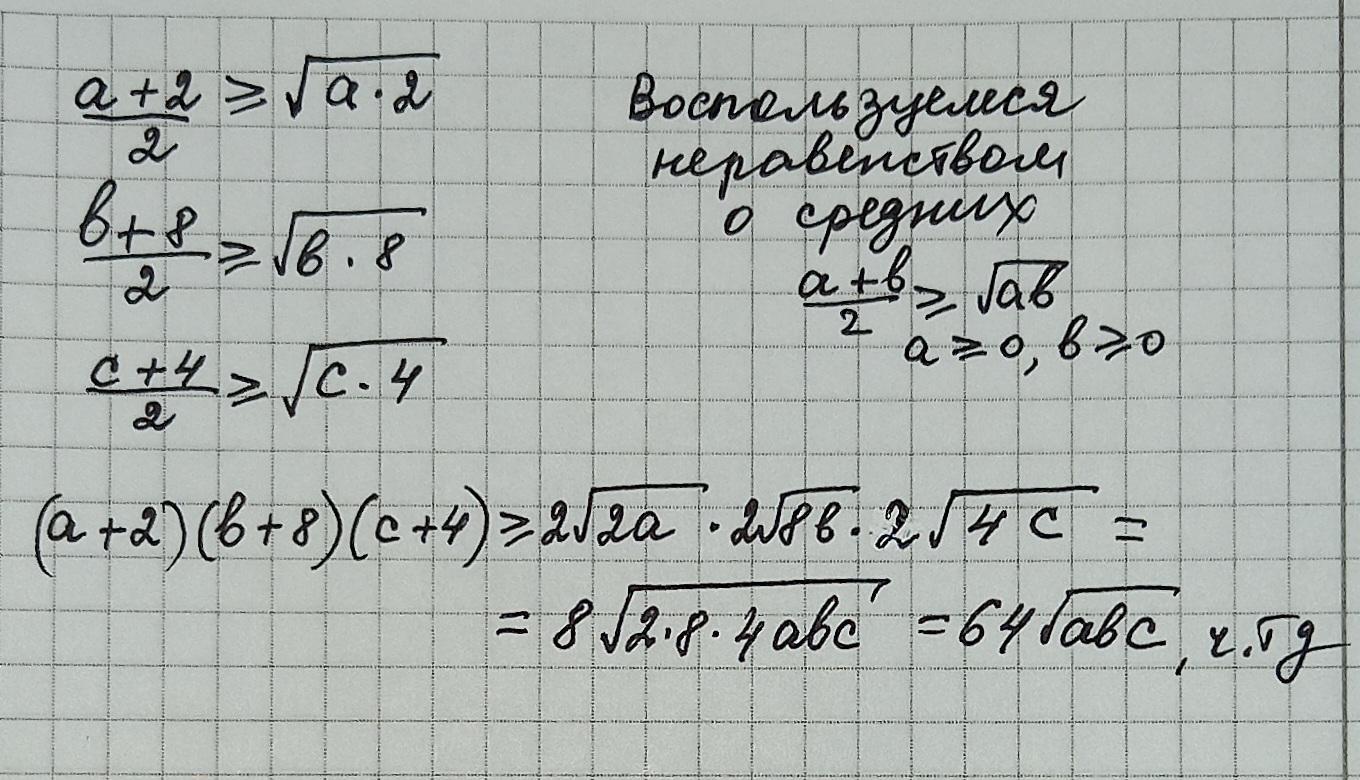 (a+2)/2 ≥ √(a·2)
(b+8)/2 ≥ √(b·8)
(c+4)/2 ≥ √(c·4)
Воспользуемся
неравенством
о средних
(a+b)/2 ≥ √(ab)
a ≥ 0, b ≥ 0
(a+2)(b+8)(c+4) ≥ 2√(2a) · 2√(8b) · 2√(4c) =
= 8√(2·8·4abc) = 64√(abc), ч.тд